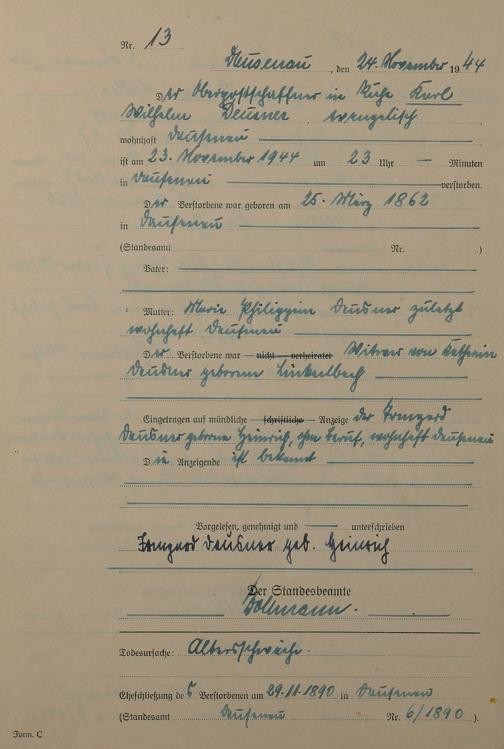 Nr. 13
Dausenau, den 24. November 1944
Der Oberpostschaffner in Ruhe Karl
Wilhelm Deusner evangelisch
wohnhaft Dausenau
ist am 23. November 1944 um 23 Uhr — Minuten
in Dausenau verstorben.
Der Verstorbene war geboren am 25. März 1862
in Dausenau
(Standesamt Nr. )
Vater:
Mutter: Marie Philippine Deusner zuletzt
wohnhaft Dausenau
Der Verstorbene war — nicht — verheiratet Witwer von Katharine
Deusner geborene Linkelbach
Eingetragen auf mündliche — schriftliche — Anzeige der Irmgard
Deusner geborene Heinrich, ohne Beruf, wohnhaft Dausenau
Die Anzeigende ist bekannt
Vorgelesen, genehmigt und unterschrieben
Irmgard Deusner geb. Heinrich
Der Standesbeamte
Todesursache: Altersschwäche.
Eheschließung des Verstorbenen am 29.11.1890 in Dausenau
(Standesamt Dausenau Nr. 6/1890 ).
Form. C